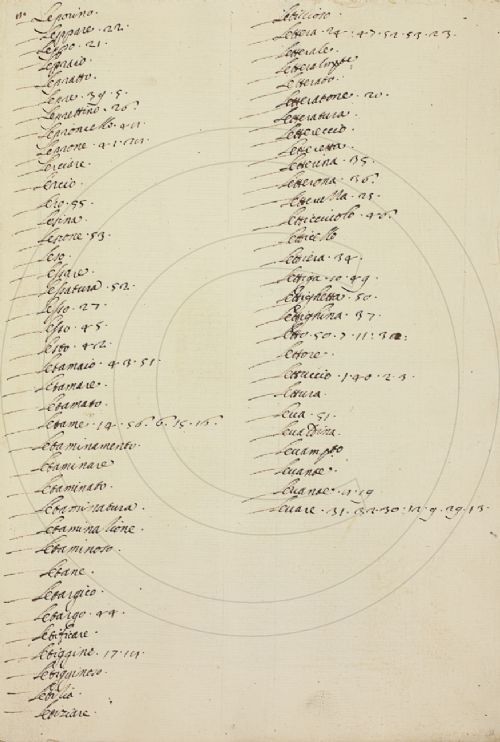 Leporino.
Leppare. 22.
Leppo. 21.
Leprato.
Lepre. 39. 5.
Leprettino. 26.
Leproncello. 41.
Leprone.
Lerciare.
Lercio.
Lero. 55.
Lesina.
Lesione. 53.
Leso.
Lessare.
Lessatura. 52.
Lesso. 27.
Lesto. 42.
Letamaio. 43. 51.
Letamare.
Letamato.
Letame. 14. 56. 6. 15. 16.
Letaminamento.
Letaminare
Letaminato.
Letaminatura.
Letaminazione.
Letaminoso.
Letane.
Letargico.
Letargo. 44.
Letificare.
Letiggine. 17. 14.
Letigginoso.
Letiziare.
Letizioso.
Lettera. 24. 47. 52. 53. 23.
Letterale.
Letterato.
Letteratone. 20.
Letteratura.
Lettereccio.
Letteretta.
Letterina. 35.
Letterona. 36.
Letterella. 23.
Letticciuolo. 46.
Letticello
Lettiera. 34.
Lettiga. 10. 49.
Lettighetta. 50.
Lettighina. 37.
Letto. 50. 7. 11.
Lettore.
Lettuccio. 1. 40. 23.
Lettura.
Leva. 51.
Levante.
Levante. 19
Levare. 31. 32. 30. 12. 9. 29. 13.